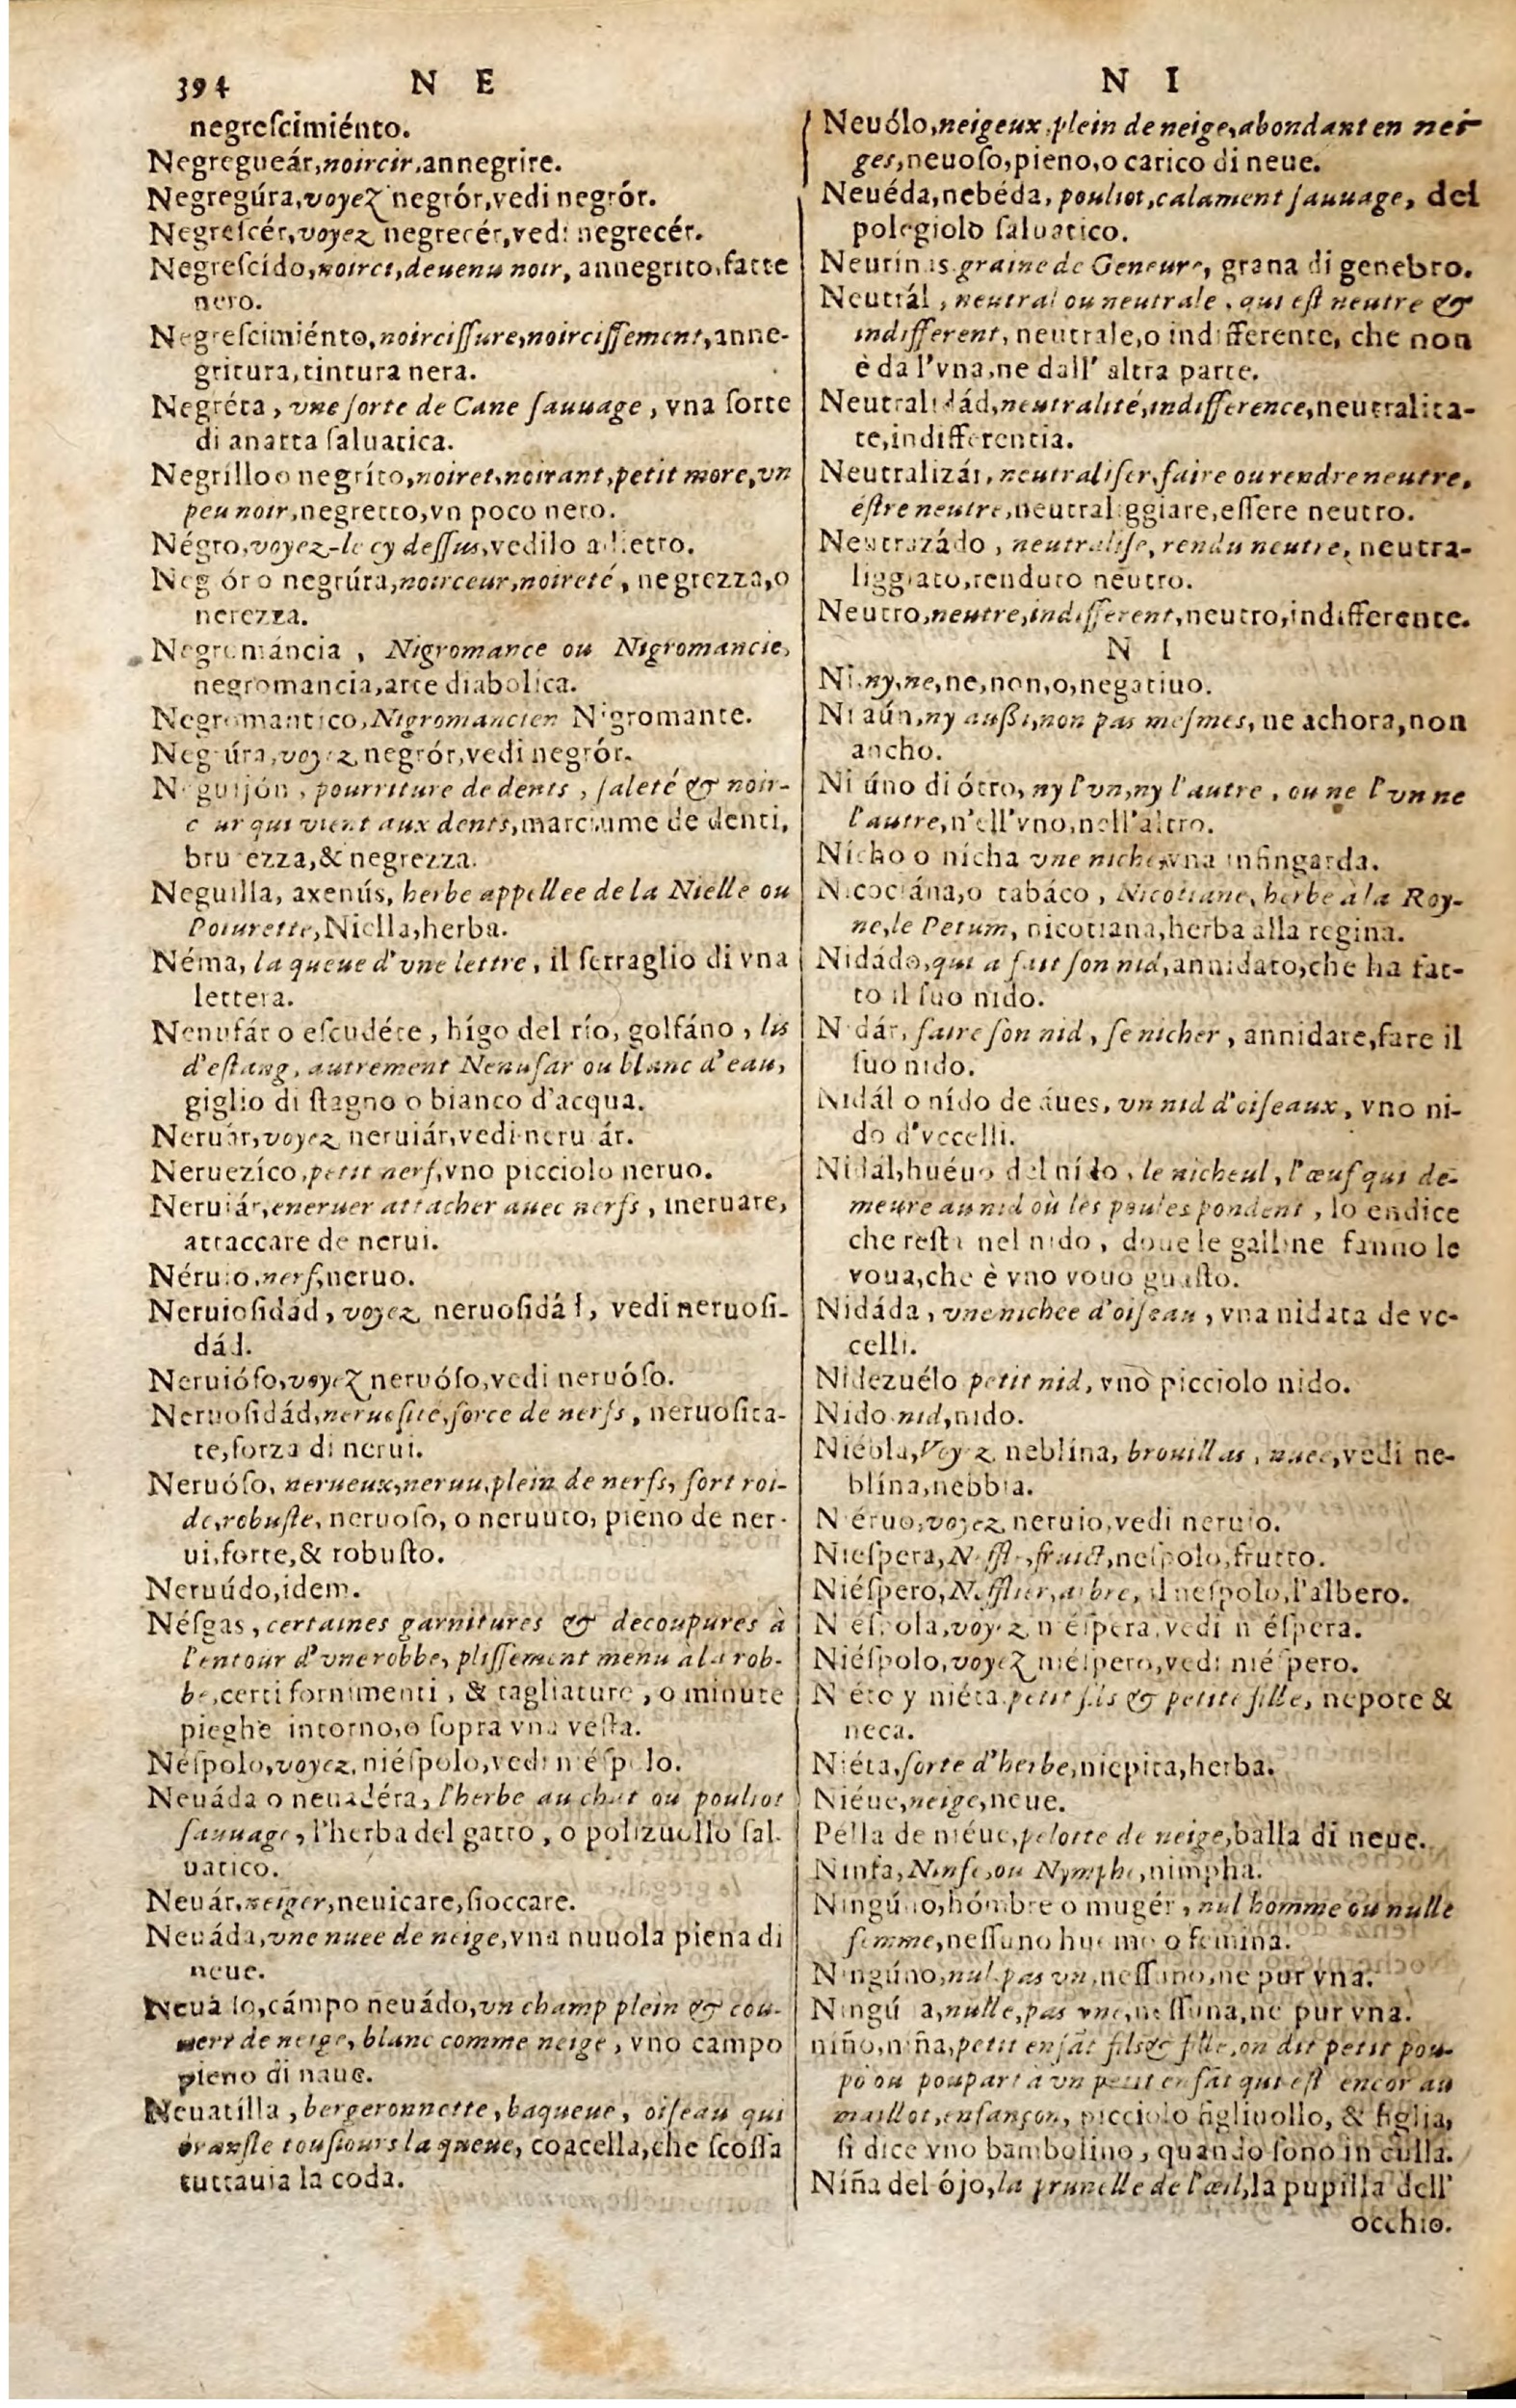 394 N E
negreſcimiénto.
Negregueár, noircir, annegrire.
Negregúra, voyez negrór, vedi negrór.
Negreſcér, voyez negrecér, vedi negrecér.
Negreſcído, noirci, deuenu noir, annegrito, fatte
nero.
Negreſcimiénto, noirciſſure, noirciſſement, anne-
gritura, tintura nera.
Negréta, vne ſorte de Cane ſauuage, vna ſorte
di anatra ſaluatica.
Negrillo o negríto, noiret, noirant, petit more, vn
peu noir, negretto, vn poco nero.
Négro, voyez-le cy deſſus, vedilo adietro.
Negrór o negrúra, noirceur, noireté, negrezza, o
nerezza.
Negrománcia, Nigromance ou Nigromancie,
negromancia, arte diabolica.
Negromantico, Nigromancien Nigromante.
Negrúra, voyez negrór, vedi negrór.
Neguijón, pourriture de dents, ſaleté & noir-
ceur qui vient aux dents, marciume de denti,
bruttezza, & negrezza.
Neguilla, axenús, herbe appellee de la Nielle ou
Poiurette, Niella, herba.
Néma, la queue d'vne lettre, il ſerraglio di vna
lettera.
Nenufár o eſcudéte, hígo del río, golfáno, lis
d'eſtang, autrement Nenufar ou blanc d'eau,
giglio di ſtagno o bianco d'acqua.
Neruár, voyez neruiár, vedi neruiár.
Neruezíco, petit nerf, vno picciolo neruo.
Neruiár, eneruer attacher auec nerfs, ineruare,
attaccare de nerui.
Néruio, nerf, neruo.
Neruioſidád, voyez neruoſidád, vedi neruoſi-
dád.
Neruióſo, voyez neruóſo, vedi neruóſo.
Neruoſidád, neruoſité, force de nerfs, neruoſita-
te, forza di nerui.
Neruóſo, nerueux, neruu, plein de nerfs, fort roi-
de, robuſte, neruoſo, o neruuto, pieno de ner-
ui, forte, & robuſto.
Neruúdo, idem.
Néſgas, certaines garnitures & decoupures à
l'entour d'vne robbe, pliſſement menu à la rob-
be, certi fornimenti, & tagliature, o minute
pieghe intorno, o ſopra vna veſta.
Néſpolo, voyez, niéſpolo, vedi niéſpolo.
Neuáda o neuadéra, l'herbe au chat ou pouliot
ſauuage, l'herba del gatto, o polizuollo ſal-
uatico.
Neuár, neiger, neuicare, fioccare.
Neuáda, vne nuee de neige, vna nuuola piena di
neue.
Neuádo, cámpo neuádo, vn champ plein & cou-
uert de neige, blanc comme neige, vno campo
pieno di naue.
Neuatílla, bergeronnette, baqueue, oiſeau qui
branſle touſiours la queue, coacella, che ſcoſſa
tuttauia la coda.
N I
Neuólo, neigeux, plein de neige, abondant en nei-
ges, neuoſo, pieno, o carico di neue.
Neuéda, nebéda, pouliot, calament ſauuage, del
polegiolo ſaluatico.
Neurinas graine de Geneure, grana di genebro.
Neutrál, neutral ou neutrale, qui eſt neutre &
indifferent, neutrale, o indifferente, che non
è da l'vna, ne dall' altra parte.
Neutralidád, neutralité, indifference, neutralita-
te, indifferentia.
Neutralizár, neutraliſer, faire ou rendre neutre,
éſtre neutre, neutraliggiare, eſſere neutro.
Neutrazádo, neutraliſe, rendu neutre, neutra-
liggiato, renduto neutro.
Neutro, neutre, indifferent, neutro, indifferente.
N I
Ni, ny, ne, ne, non, o, negatiuo.
Ni aún, ny außi, non pas meſmes, ne achora, non
ancho.
Ni úno di ótro, ny l'vn, ny l'autre, ou ne l'vn ne
l'autre, n'ell'vno, nell'altro.
Nícho o nícha vne niche, vna infingarda.
Nicociána, o tabáco, Nicotiane, herbe à la Roy-
ne, le Petum, nicotiana, herba alla regina.
Nidádo, qui a fait ſon nid, annidato, che ha fat-
to il ſuo nido.
Nidár, faire ſon nid, ſe nicher, annidare, fare il
ſuo nido.
Nidál o nído de áues, vn nid d'oiſeaux, vno ni-
do d'vccelli.
Nidál, huéuo del nído, le nicheul, l'œuf qui de-
meure au nid où les poules pondent, lo endice
che reſta nel nido, doue le galline fanno le
voua, che è vno vouo guaſto.
Nidáda, vne nichee d'oiſeau, vna nidata de vc-
celli.
Nidezuélo petit nid, vno picciolo nido.
Nido nid, nido.
Niébla, Voyez neblína, brouillas, nuee, vedi ne-
blína, nebbia.
Niéruo, voyez neruio, vedi neruio.
Nieſpera, Neffle, fruict, neſpolo, frutto.
Niéſpero, Nefflier, arbre, il neſpolo, l'albero.
Niéſpola, voyez niéſpera, vedi niéſpera.
Niéſpolo, voyez niéſpero, vedi niéſpero.
Niéto y niéta petit fils & petite fille, nepote &
neca.
Niéta, ſorte d'herbe, niepita, herba.
Niéue, neige, neue.
Pélla de niéue, pelotte de neige, balla di neue.
Ninfa, Ninfe, ou Nymphe, nimpha.
Ningúno, hómbre o mugér, nul homme ou nulle
femme, neſſuno huomo o femina.
Ningúno, nul, pas vn, neſſuno, ne pur vna.
Ningúna, nulle, pas vne, neſſuna, ne pur vna.
niño, niña, petit enfãt fils & fille, on dit petit pou-
põ ou poupart à vn petit enfãt qui eſt encor au
maillot, enfançon, picciolo figliuollo, & figlia,
ſi dice vno bambolino, quando ſono in culla.
Niña del ójo, la prunelle de l'œil, la pupilla dell'
occhio.